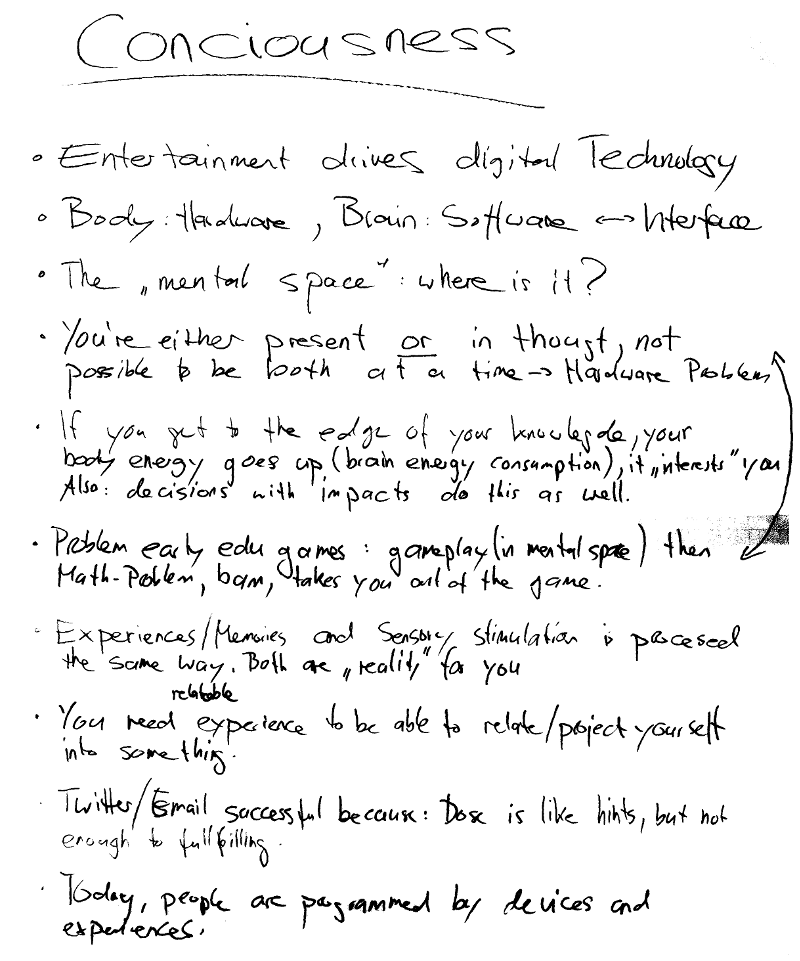 Conciousness
• Entertainment drives digital Technology
• Body: Hardware, Brain: Software ↔ Interface
• The „mental space“: where is it?
• You're either present or in thougt, not
possible to be both at a time → Hardware Problem
• If you get to the edge of your knowlegde, your
body energy goes up (brain energy consumption), it „interests“ you
Also: decisions with impacts do this as well.
• Problem early edu games: gameplay (in mental space) then
Math-Problem, bam, takes you out of the game.
• Experiences/Memories and Sensory stimulation is processed
the same way. Both are „reality“ for you
relatable
• You need experience to be able to relate/project yourself
into something.
• Twitter/Email successful because: Dose is like hints, but not
enough to fullfilling.
• Today, people are programmed by devices and
experiences.